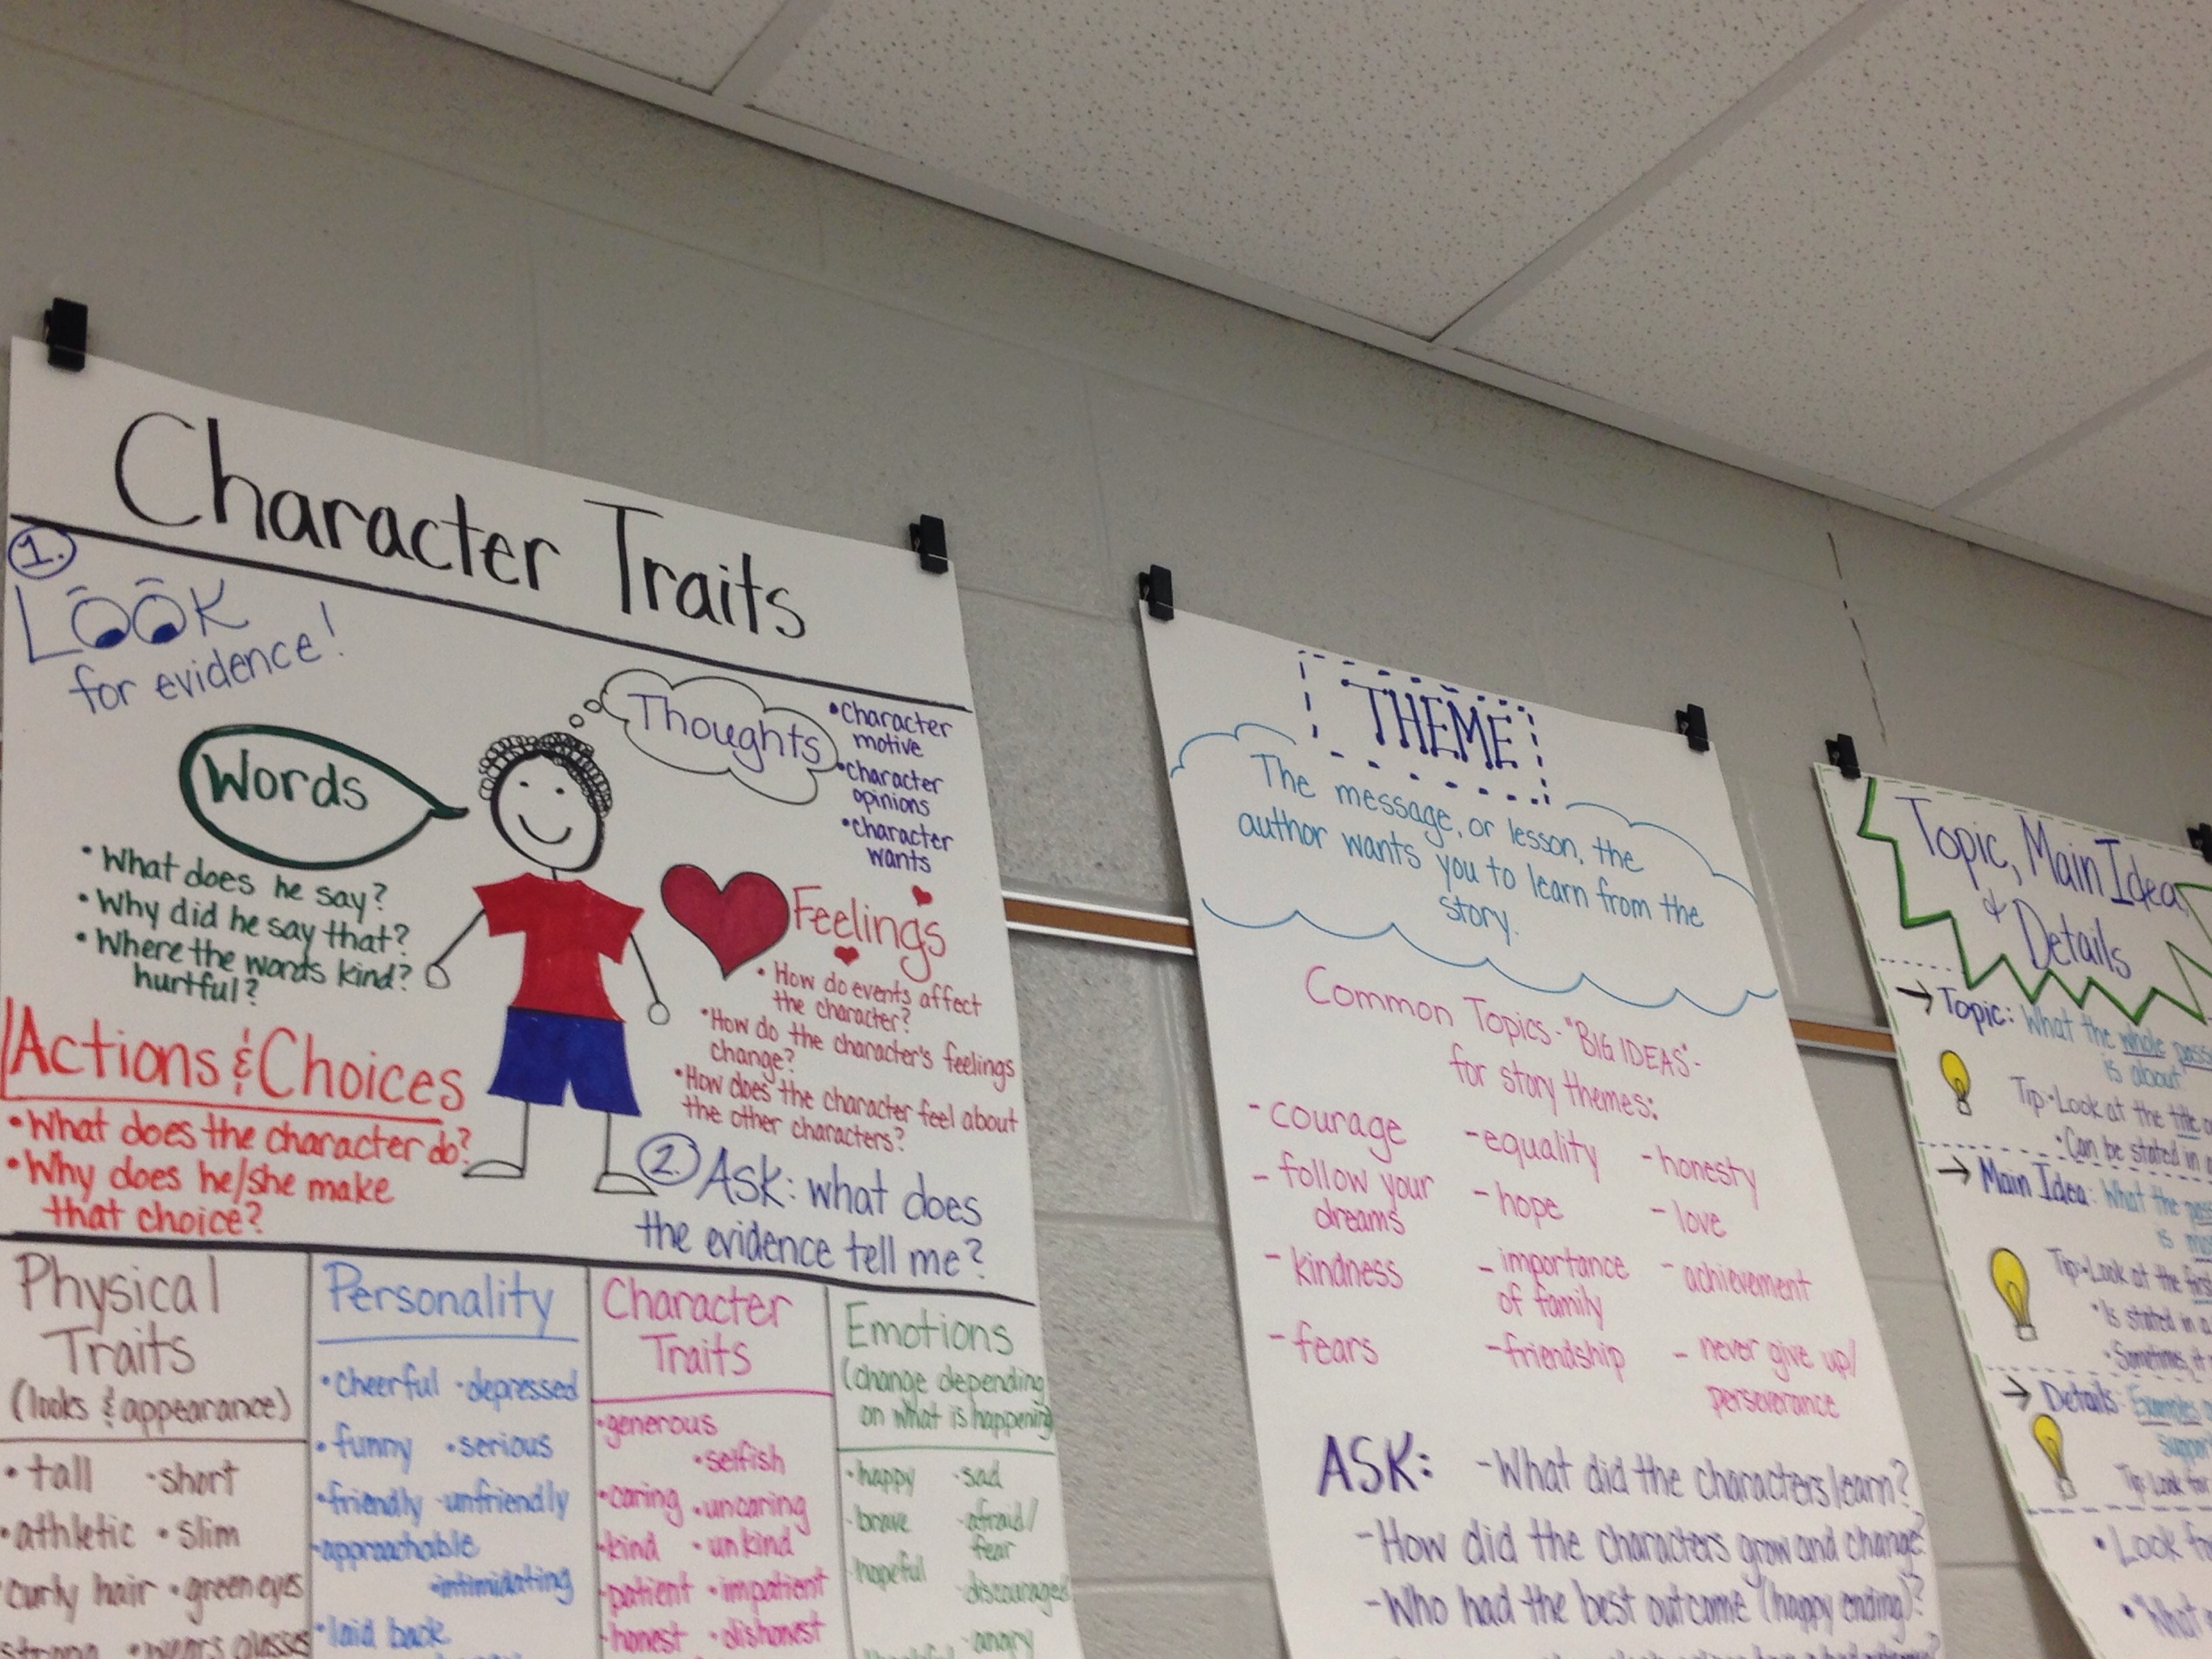 Character Traits
1.
LOOK
for evidence!
Words
• What does he say?
• Why did he say that?
• Where the words kind?
hurtful?
Thoughts
• Character
motive
• Character
opinions
• Character
wants
Feelings
• How do events affect
the character?
• How do the character's feelings
change?
• How does the character feel about
the other characters?
Actions & Choices
• What does the character do?
• Why does he/she make
that choice?
2. Ask: what does
the evidence tell me?
Physical
Traits
(looks & appearance)
• tall • short
• athletic • slim
curly hair • green eyes
strong • wears glasses
Personality
• cheerful • depressed
• funny • serious
• friendly • unfriendly
• approachable
• intimidating
• laid back
Character
Traits
• generous
• selfish
• caring • uncaring
• kind • unkind
• patient • impatient
• honest • dishonest
Emotions
(change depending
on what is happening
• happy • sad
• brave • afraid/
fear
• hopeful
• discouraged
• angry
THEME
The message, or lesson, the
author wants you to learn from the
story.
Common Topics - "BIG IDEAS" -
for story themes:
- courage - equality - honesty
- follow your
dreams
- hope - love
- kindness - importance
of family
- achievement
- fears - friendship - never give up/
perseverance
ASK: - What did the characters learn?
- How did the characters grow and change?
- Who had the best outcome (happy ending)?
Topic, Main Idea,
& Details
→ Topic: What the whole
is about
Tip • Look at the title
• Can be stated in a
→ Main Idea: What the
is
Tip • Look at the
• Is stated in a
• Sometimes, it
→ Details: Examples
Tip: Look for
• Look for
• "What